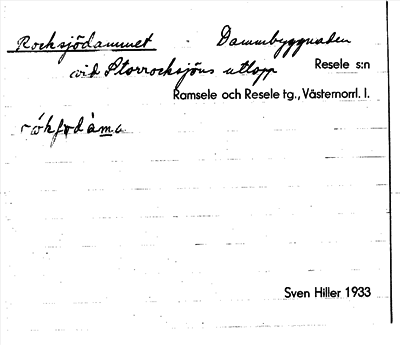 Rocksjödammet Dammbyggnaden
vid Storrocksjöns utlopp Resele s:n
Ramsele och Resele tg., Västernorrl. l.
Sven Hiller 1933